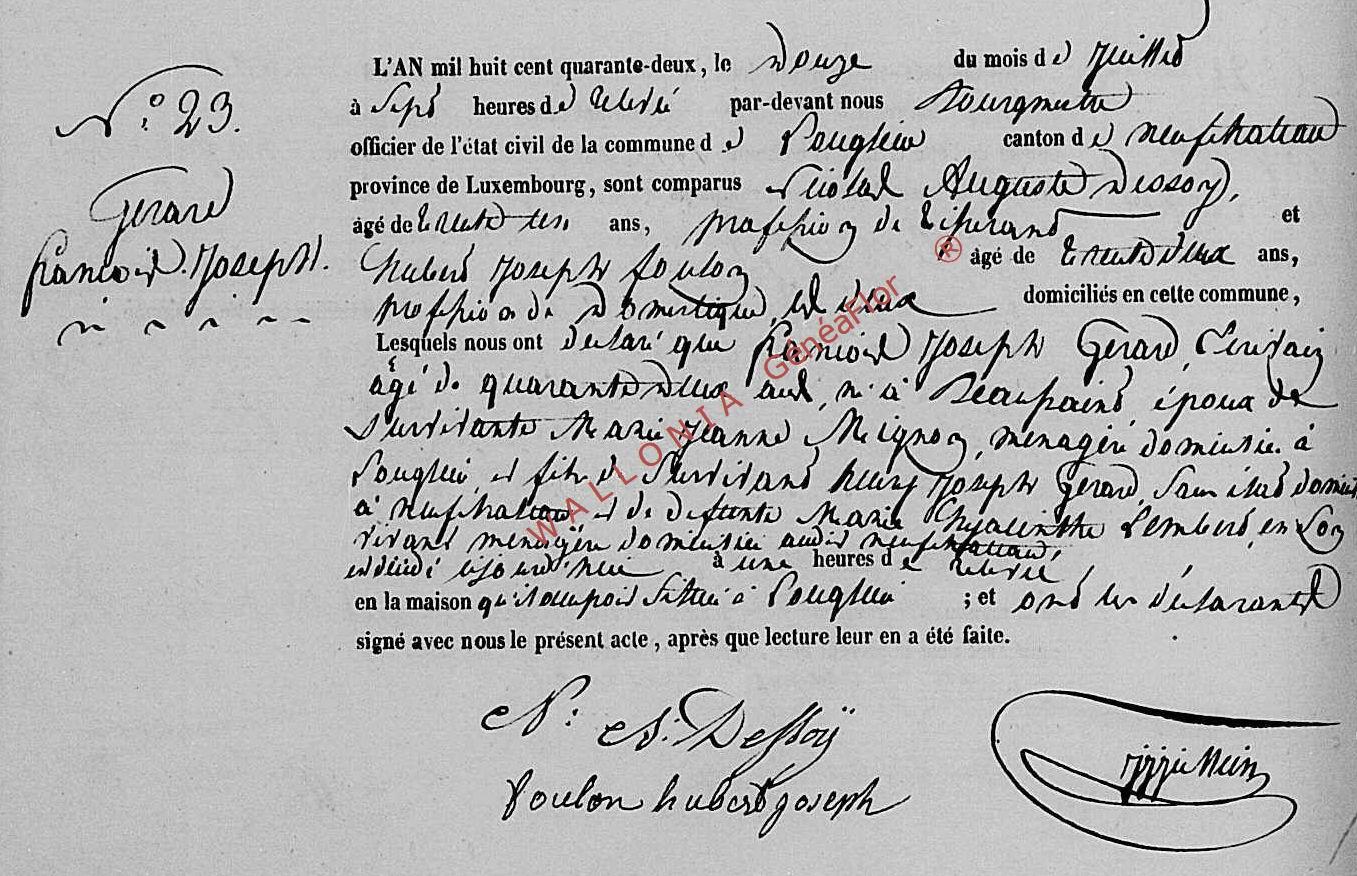 N.° 23.
Gerard
françois Joseph.
L'AN mil huit cent quarante-deux, le Douze du mois de Juillet
à Sept heures de relevé par-devant nous Bourgmestre
officier de l'état civil de la commune de Longlier canton de neufchateau
province de Luxembourg, sont comparus Nicolas Auguste Dessoy,
âgé de trente six ans, profession de tisserand et
hubert Joseph foulon âgé de trente deux ans,
profession de Domestique, les deux domiciliés en cette commune,
Lesquels nous ont declaré que françois Joseph Gerard, Ecrivain
agé de quarante deux ans, né à Beauraint, époux de
Survivante Marie Jeanne Mignon, menagère domiciliée à
Longlier, et fils de Survivant henry Joseph Gerard, Sans état domicilié
à neufchateau et de defunte Marie hyacinthe Lambert, en Son
vivant menagère domiciliée audit neufchateau,
est décédé aujourd'hui à une heures de relevé
en la maison qu'il occupoit Située à Longlier ; et ont les déclarants
signé avec nous le présent acte, après que lecture leur en a été faite.
N. A. Dessoÿ
foulon hubert joseph
WALLONIA GénéaFlor ®